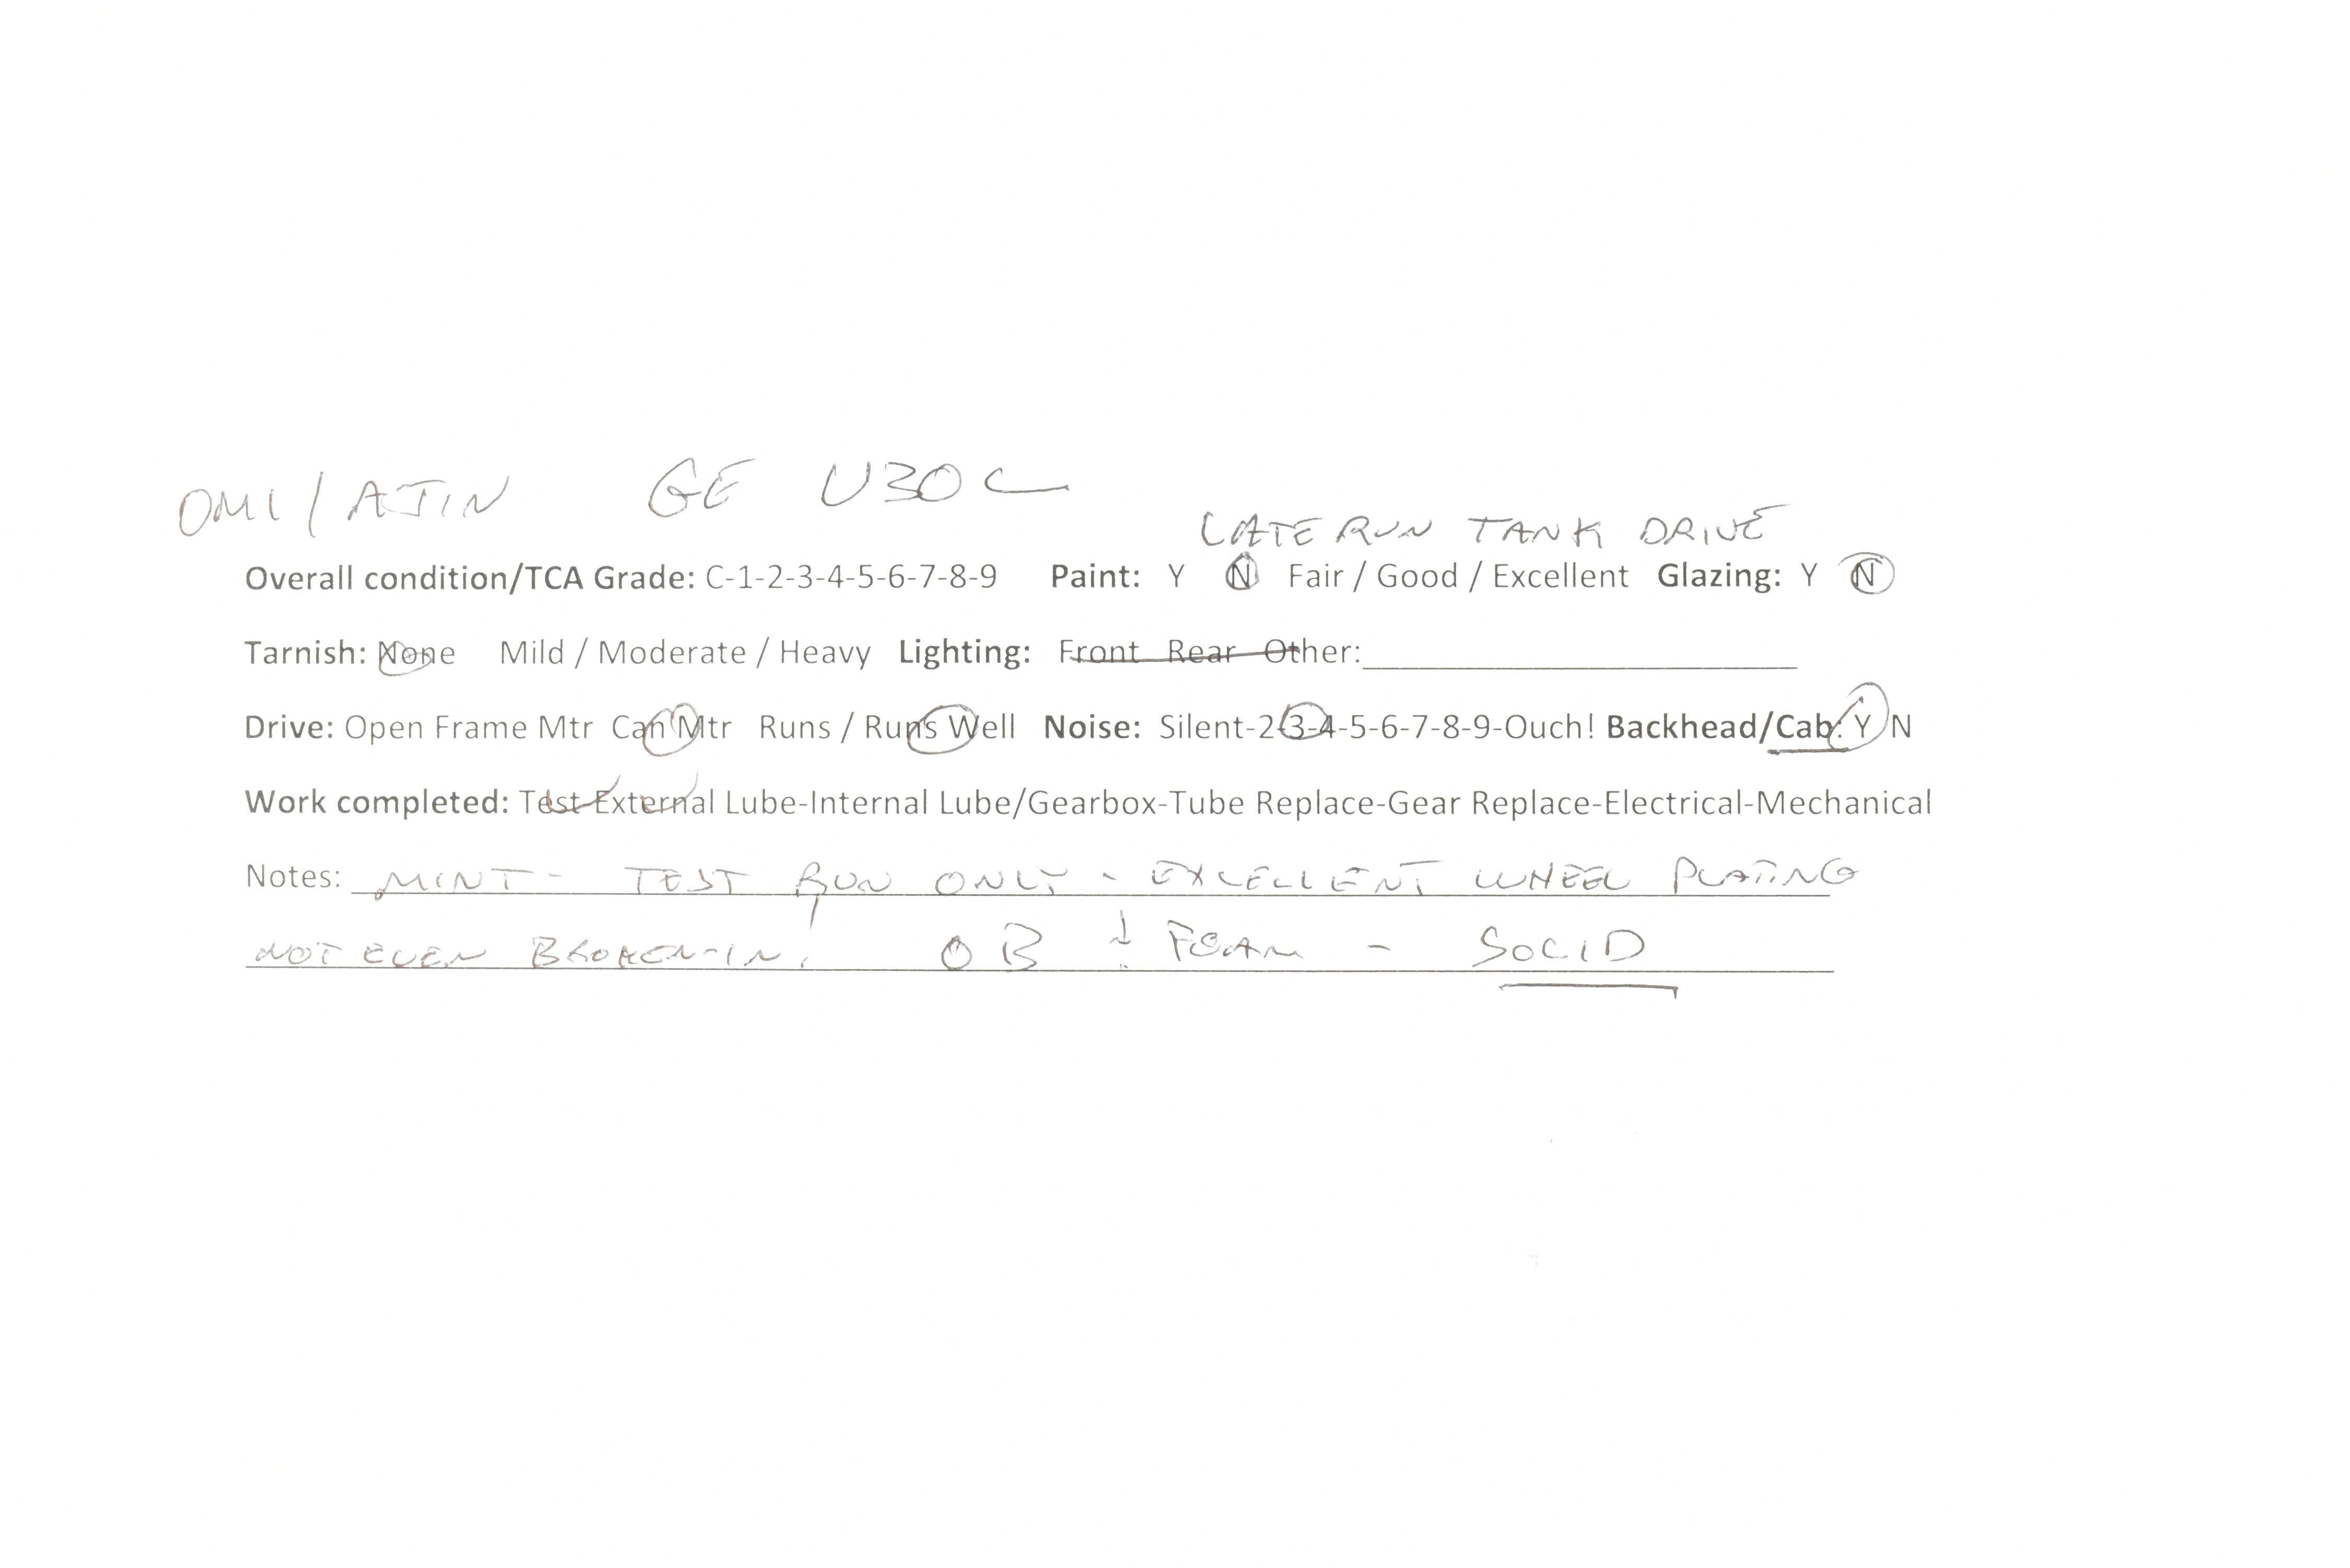 OMI/AJIN GE U30C
LATE RUN TANK DRIVE
Overall condition/TCA Grade: C-1-2-3-4-5-6-7-8-9 Paint: Y N Fair / Good / Excellent Glazing: Y N
Tarnish: None Mild / Moderate / Heavy Lighting: Front Rear Other:
Drive: Open Frame Mtr Can Mtr Runs / Runs Well Noise: Silent-2-3-4-5-6-7-8-9-Ouch! Backhead/Cab: Y N
Work completed: Test-External Lube-Internal Lube/Gearbox-Tube Replace-Gear Replace-Electrical-Mechanical
Notes: MINT - TEST RUN ONLY - EXCELLENT WHEEL PLATING
NOT EVEN BROKEN-IN! OB & FOAM - SOLID